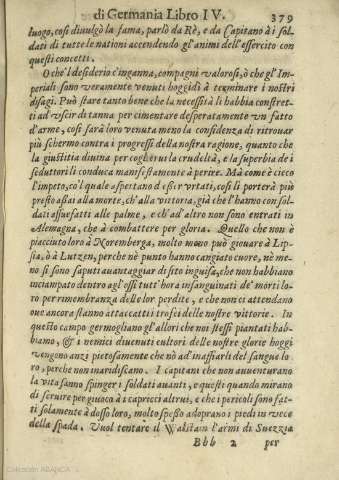 di Germania Libro IV. 379
luogo, così diuulgò la fama, parlò da Rè, e da Capitano à i sol-
dati di tutte le nationi accendendo gl'animi dell'essercito con
questi concetti.
O ch'l desiderio c'inganna, compagni valorosi, ò che gl'Im-
periali sono veramente venuti hoggidì à terminare i nostri
disagi. Può stare tanto bene che la necessità li habbia constret-
ti ad vscir di tanna per cimentare desperatamente vn fatto
d'arme, così sarà loro venuta meno la confidenza di ritrouar
più schermo contra i progressi della nostra ragione, quanto che
la giustitia diuina per coglierui la crudeltà, e la superbia de i
seduttori li conduca manifestamente à perire. Mà come è cieco
l'impeto, co'l quale aspettano d'esser vrtati, così li porterà più
presto assai alla morte, ch'alla vittoria, già che l'hanno con sol-
dati assuefatti alle palme, e ch'ad altro non sono entrati in
Alemagna, che à combattere per gloria. Quello che non è
piacciuto loro à Noremberga, molto meno può giouare à Lip-
sia, ò à Lutzen, perche nè punto hanno cangiato cuore, nè me-
no si sono saputi auantaggiar di sito in guisa, che non habbiano
inciampato dentro agl'ossi tutt'hora insanguinati de' morti lo-
ro per rimembranza delle lor perdite, e che non ci attendano
oue ancora stanno attaccati i trofei delle nostre vittorie. In
questo campo germogliano gl'allori che noi stessi piantati hab-
biamo, & i nemici diuenuti cultori delle nostre glorie hoggi
vengono anzi pietosamente che nò ad inaffiarli del sangue lo-
ro, perche non inaridiscano. I capitani che non auuenturano
la vita sanno spinger i soldati auanti, e questi quando mirano
di seruire per giuoco à i capricci altrui, e che i pericoli sono fat-
ti solamente à dosso loro, molto spesso adoprano i piedi in vece
della spada. Vuol tentare il Walstain l'armi di Suezzia
Bbb 2 per
Colección ABANCA